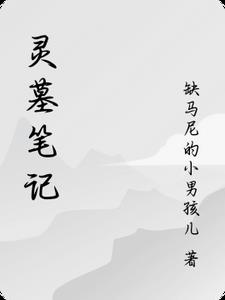 灵墓笔记
缺马尼的小男孩儿 著